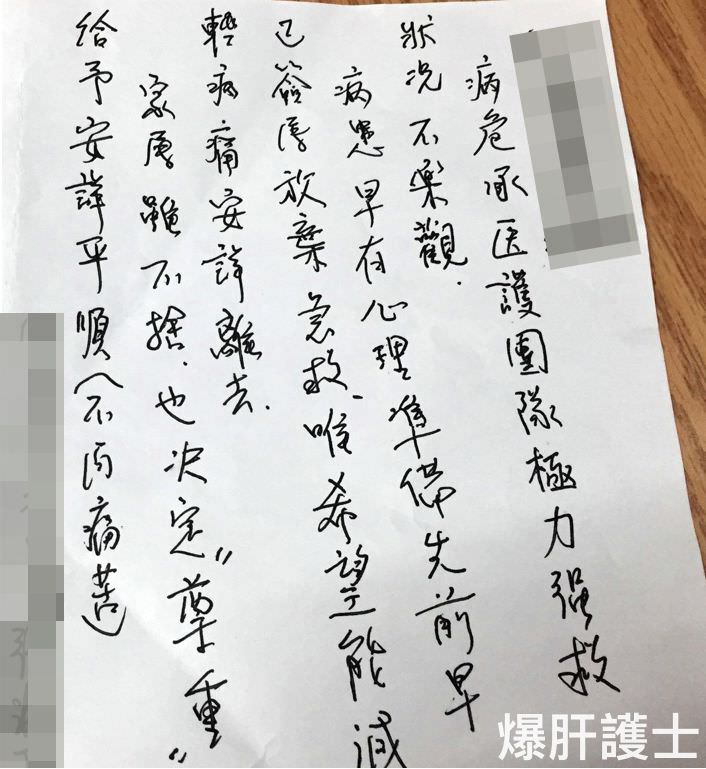 病危承医護團隊極力强救
狀況不樂觀.
病患早有心理準備先前早
已簽署放棄急救、唯希望能減
輕病痛安詳離去.
家屬雖不捨.也決定"尊重"
給予安詳平順(不再痛苦)
爆肝護士